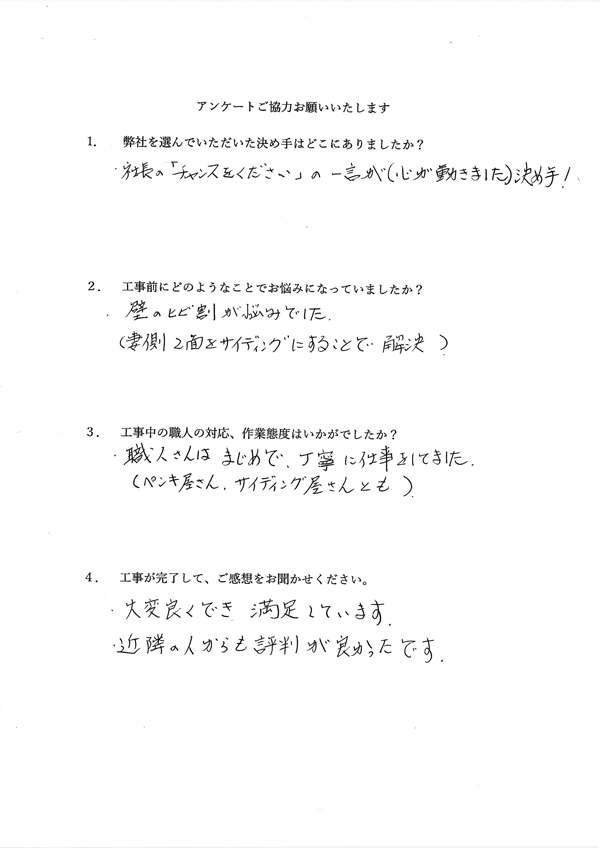 アンケートご協力お願いいたします
1. 弊社を選んでいただいた決め手はどこにありましたか？
・社長の「チャンスをください」の一言が(心が動きました)決め手！
2. 工事前にどのようなことでお悩みになっていましたか？
・壁のヒビ割が悩みでした.
(妻側2面をサイディングにすることで解決)
3. 工事中の職人の対応、作業態度はいかがでしたか？
・職人さんはまじめで、丁寧に仕事をしてました.
(ペンキ屋さん.サイディング屋さんとも)
4. 工事が完了して、ご感想をお聞かせください。
・大変良くでき 満足しています.
・近隣の人からも評判が良かったです.